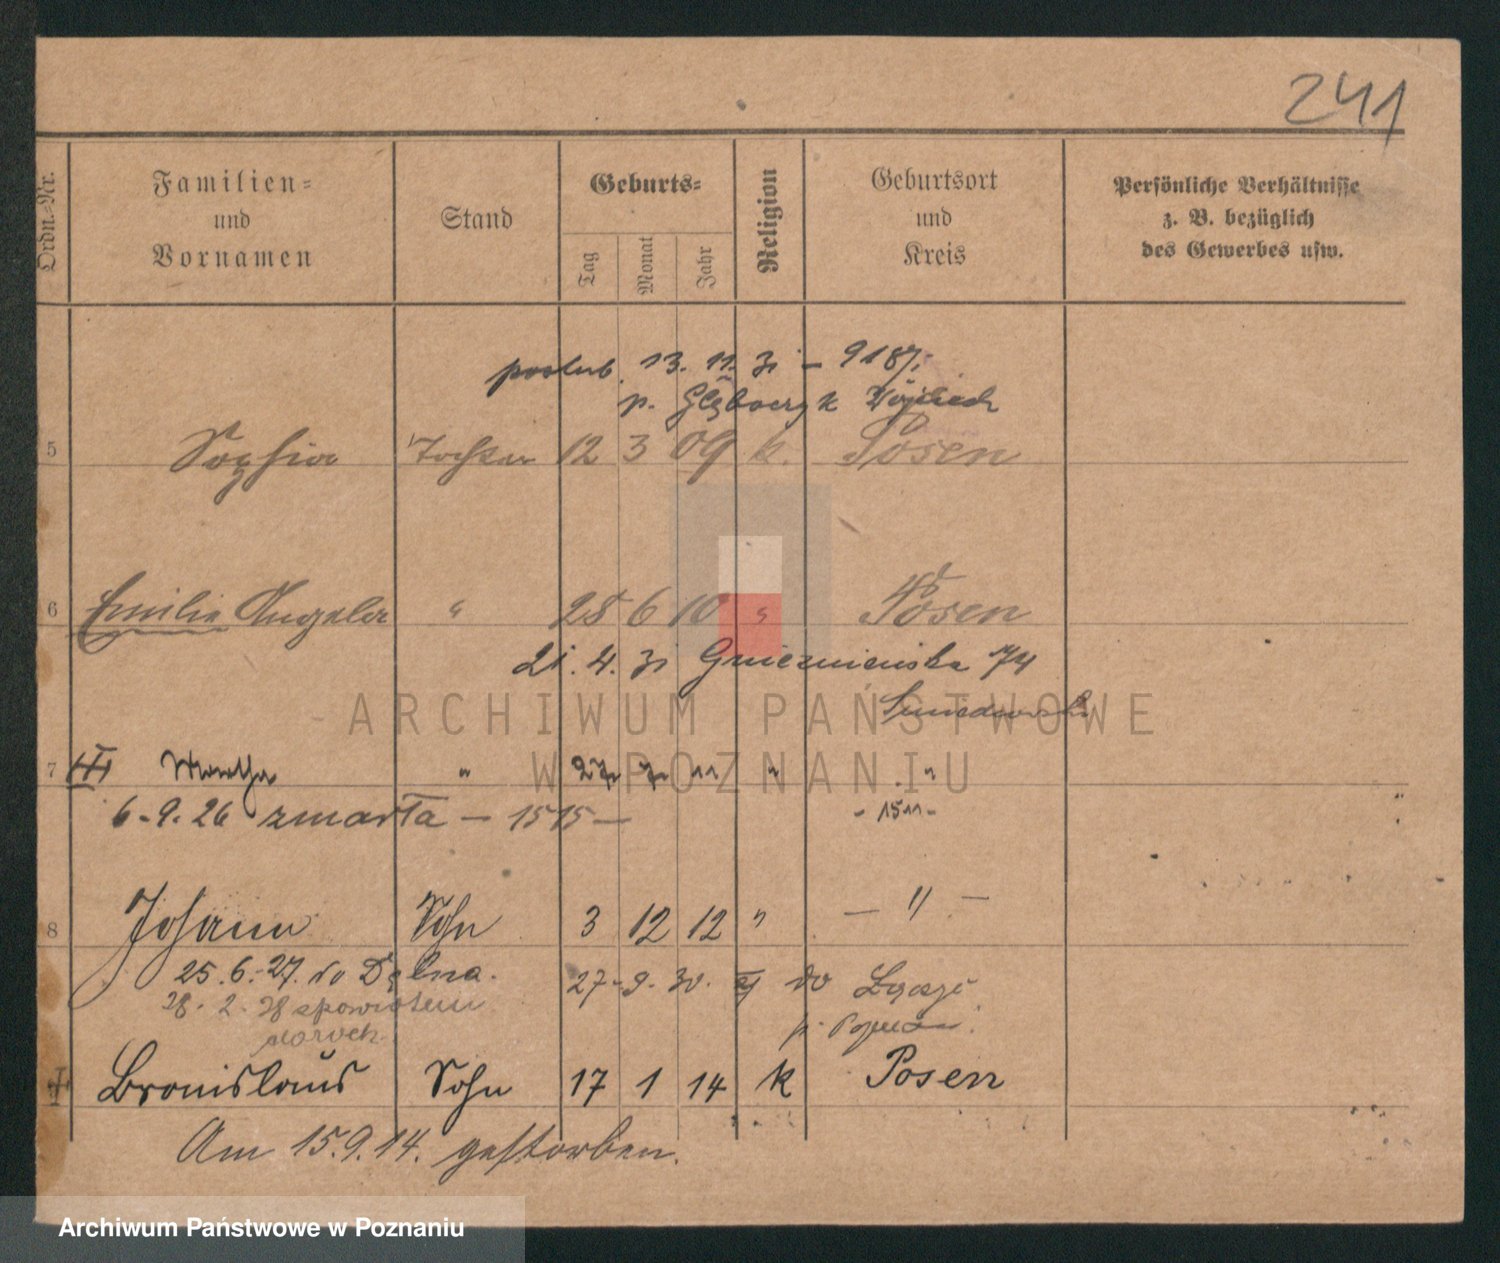 241
Ordn.-Nr.
Familien-
und
Vornamen
Stand
Geburts-
Tag
Monat
Jahr
Religion
Geburtsort
und
Kreis
Persönliche Verhältnisse
z. B. bezüglich
des Gewerbes usw.
poślub. 13. 11. 31 – 9187.
p.
5 Sophia Tochter 12 3 09 k. Posen
6 Emilie Angela " 28 6 10 " Posen
21. 4. 31 Gnieźnieńska 74
7 Martha " 27 7 11 " "
6-9.26 zmarła – 1515 – - 1511 -
8 Johann Sohn 3 12 12 " — " —
25.6.-27. do 27-9-30. do
28-2-28 zpowrotem p. Poznań.
Bronislaus Sohn 17 1 14 k Posen
Am 15.9.14. gestorben.
ARCHIWUM PAŃSTWOWE
W POZNANIU
Archiwum Państwowe w Poznaniu